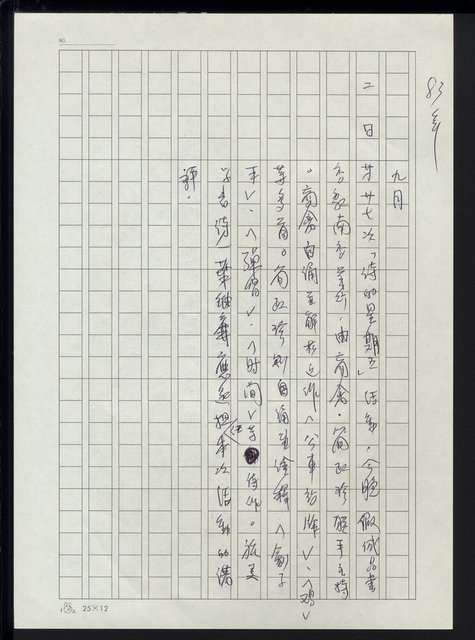 83年
九月
二日 廿廿七次「詩的星期五」活動，今晚假誠品書
香敦南店舉行，由商禽、簡政珍攜手主持
。商禽自誦並解析近作〈公車站牌〉、〈鷄〉
等多首。簡政珍則自誦並詮釋〈劊子
手〉、〈彈簧〉、〈時間〉等佳作。旅美
學者詩人葉維廉應邀擔任本次活動的講
評。
NO.
25×12